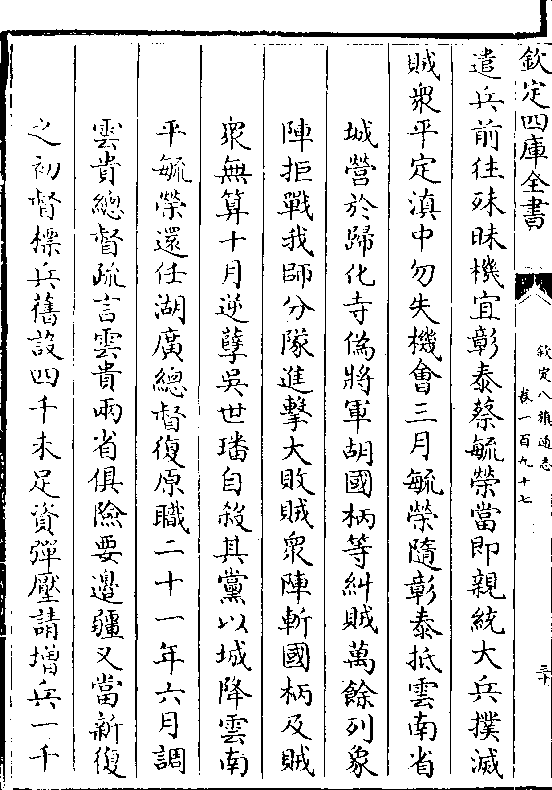 欽定四庫全書
欽定八旗通志
卷一百九十七
三十
遣兵前往殊昧機宜彰泰蔡毓榮當即親統大兵撲滅
賊衆平定滇中勿失機會三月毓榮隨彰泰抵雲南省
城營於歸化寺偽將軍胡國柄等糾賊萬餘列象
陣拒戰我師分隊進擊大敗賊衆陣斬國柄及賊
衆無算十月逆孽吳世璠自殺其黨以城降雲南
平毓榮還任湖廣總督復原職二十一年六月調
雲貴總督疏言雲貴兩省俱險要邊疆又當新復
之初督標兵舊設四千未足資彈壓請增兵一千